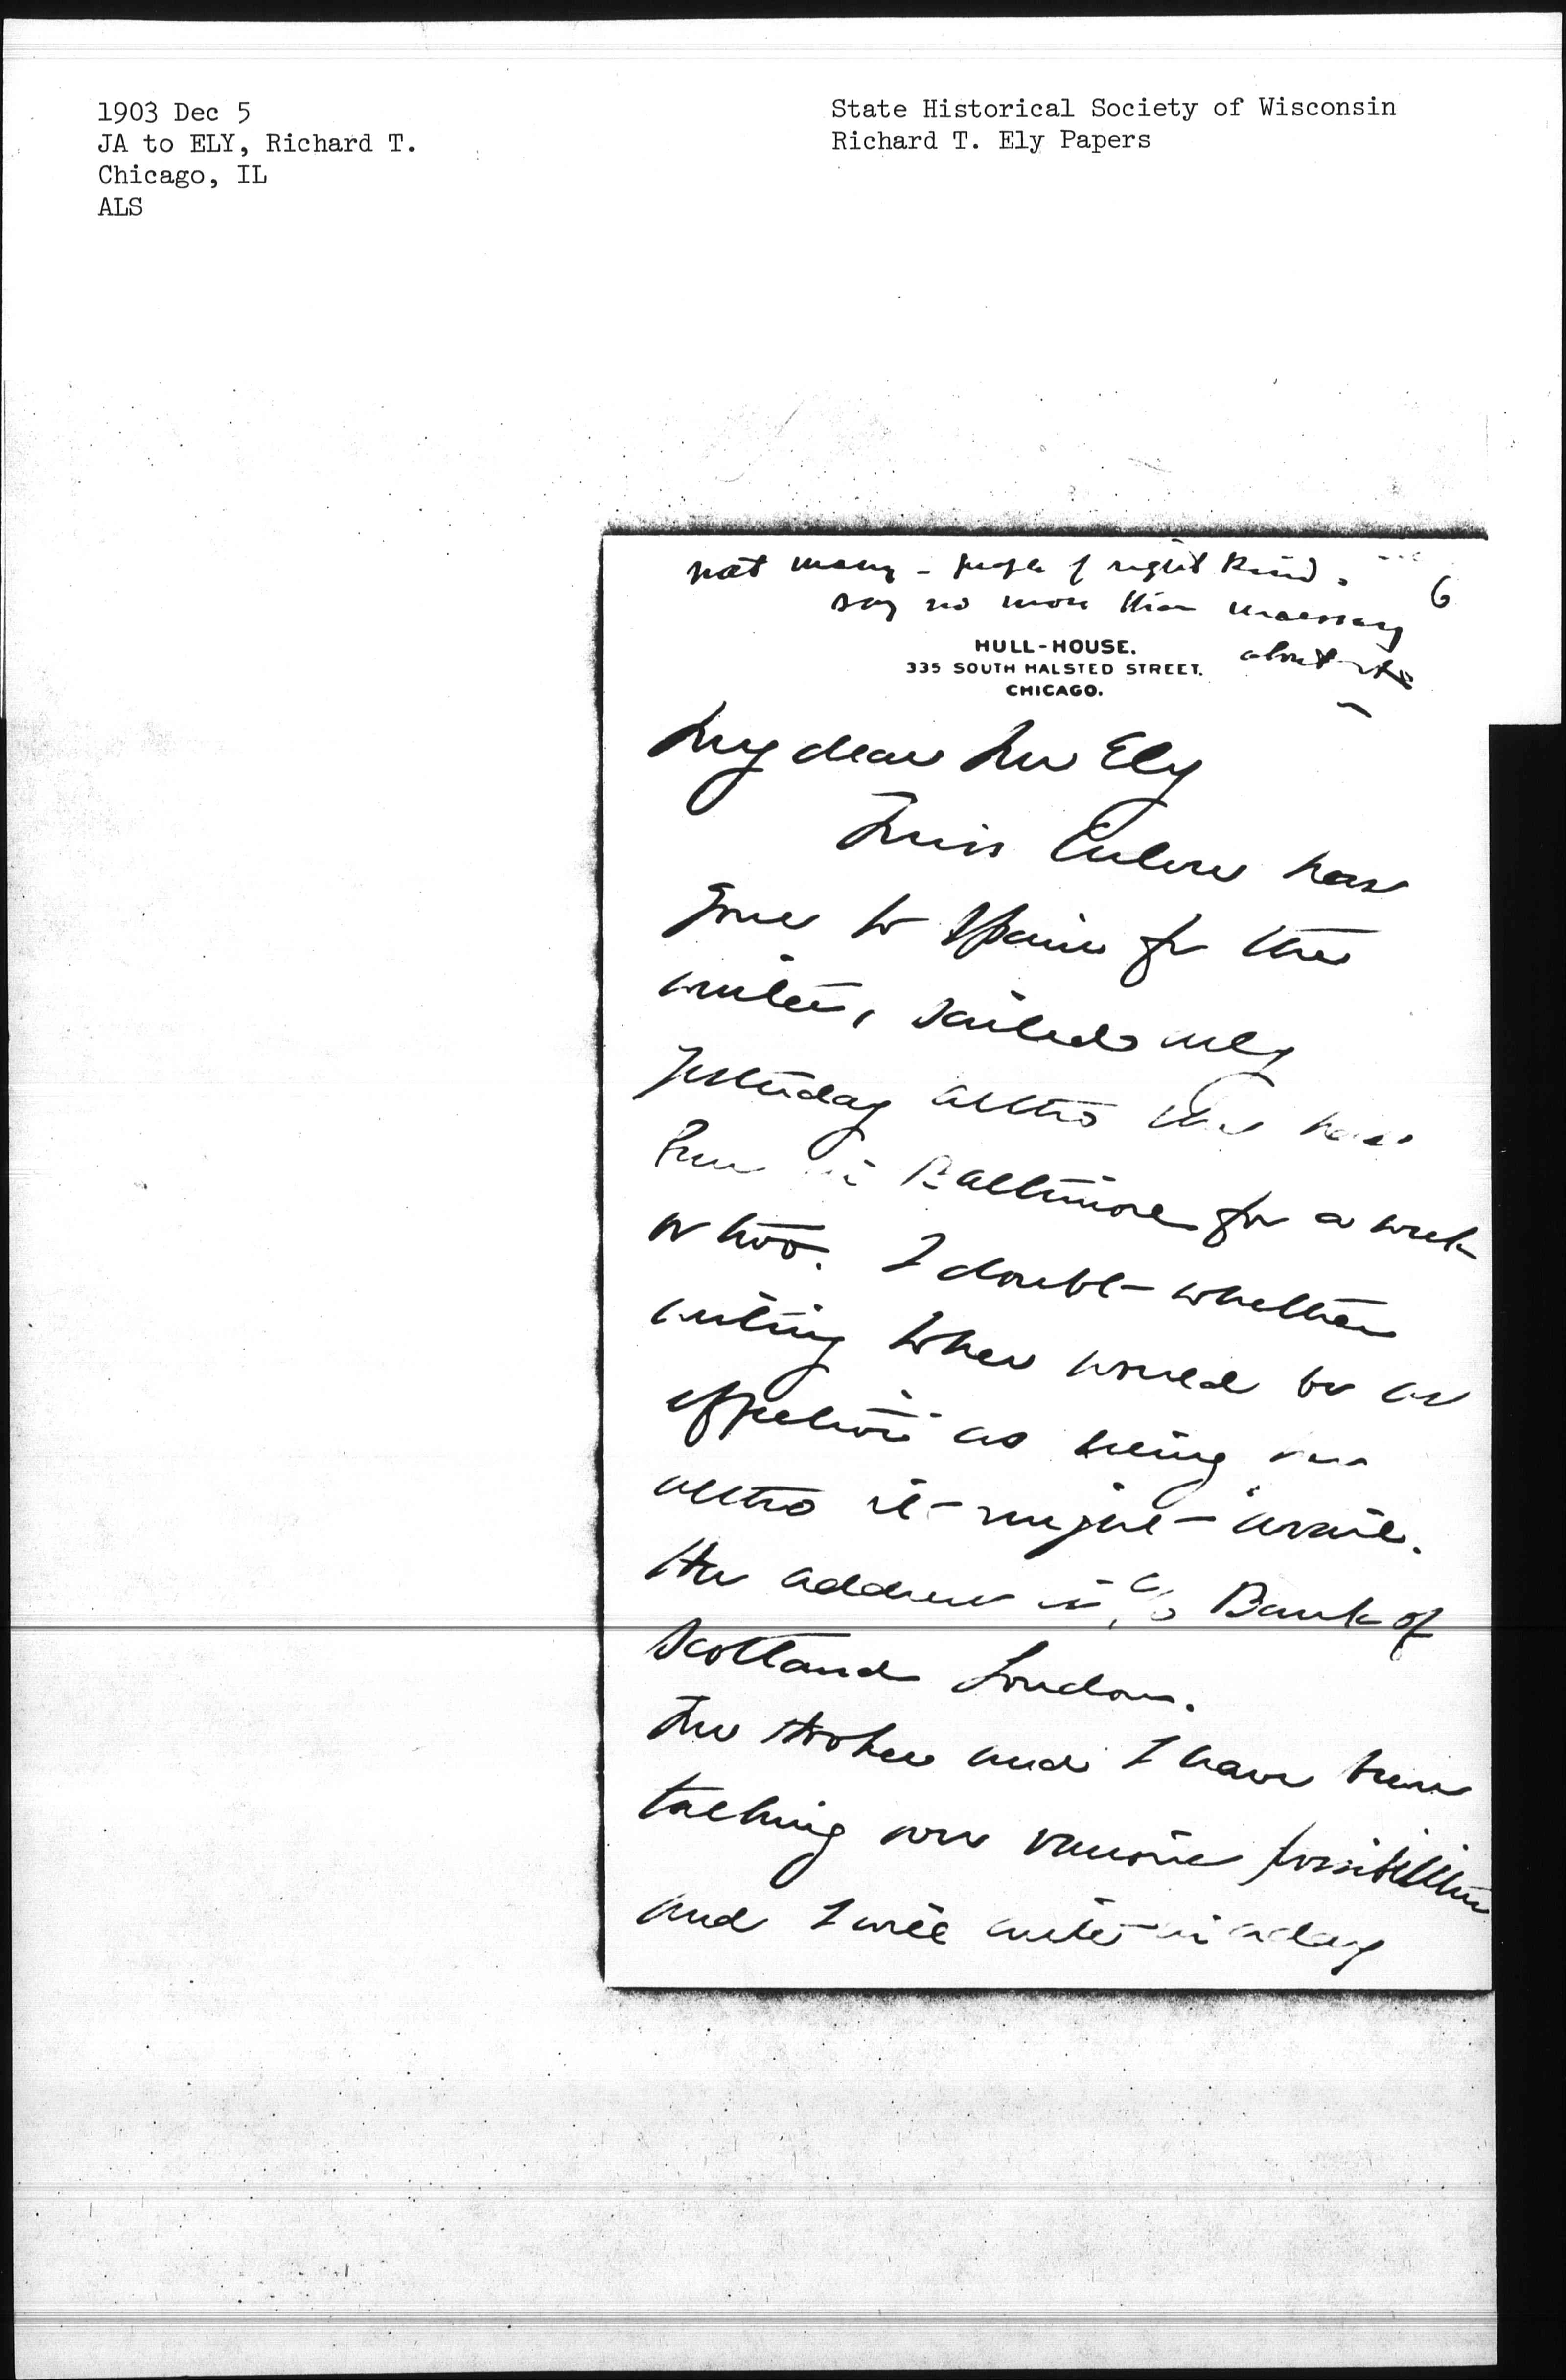 1903 Dec 5
JA to ELY, Richard T.
Chicago, IL
ALS
State Historical Society of Wisconsin
Richard T. Ely Papers
not many - people of right kind.
6
say no more than necessary
about it
HULL-HOUSE.
335 SOUTH HALSTED STREET.
CHICAGO.
My dear Mr Ely
Miss Culver has
gone to Spain for the
winter, sailed only
yesterday altho she has
been in Baltimore for a week
or two. I doubt whether
writing to her would be as
effective as seeing her
altho it might avail.
Her address is c/o Bank of
Scotland London.
Mr Hooker and I have been
talking over various possibilities
and I will write in a day